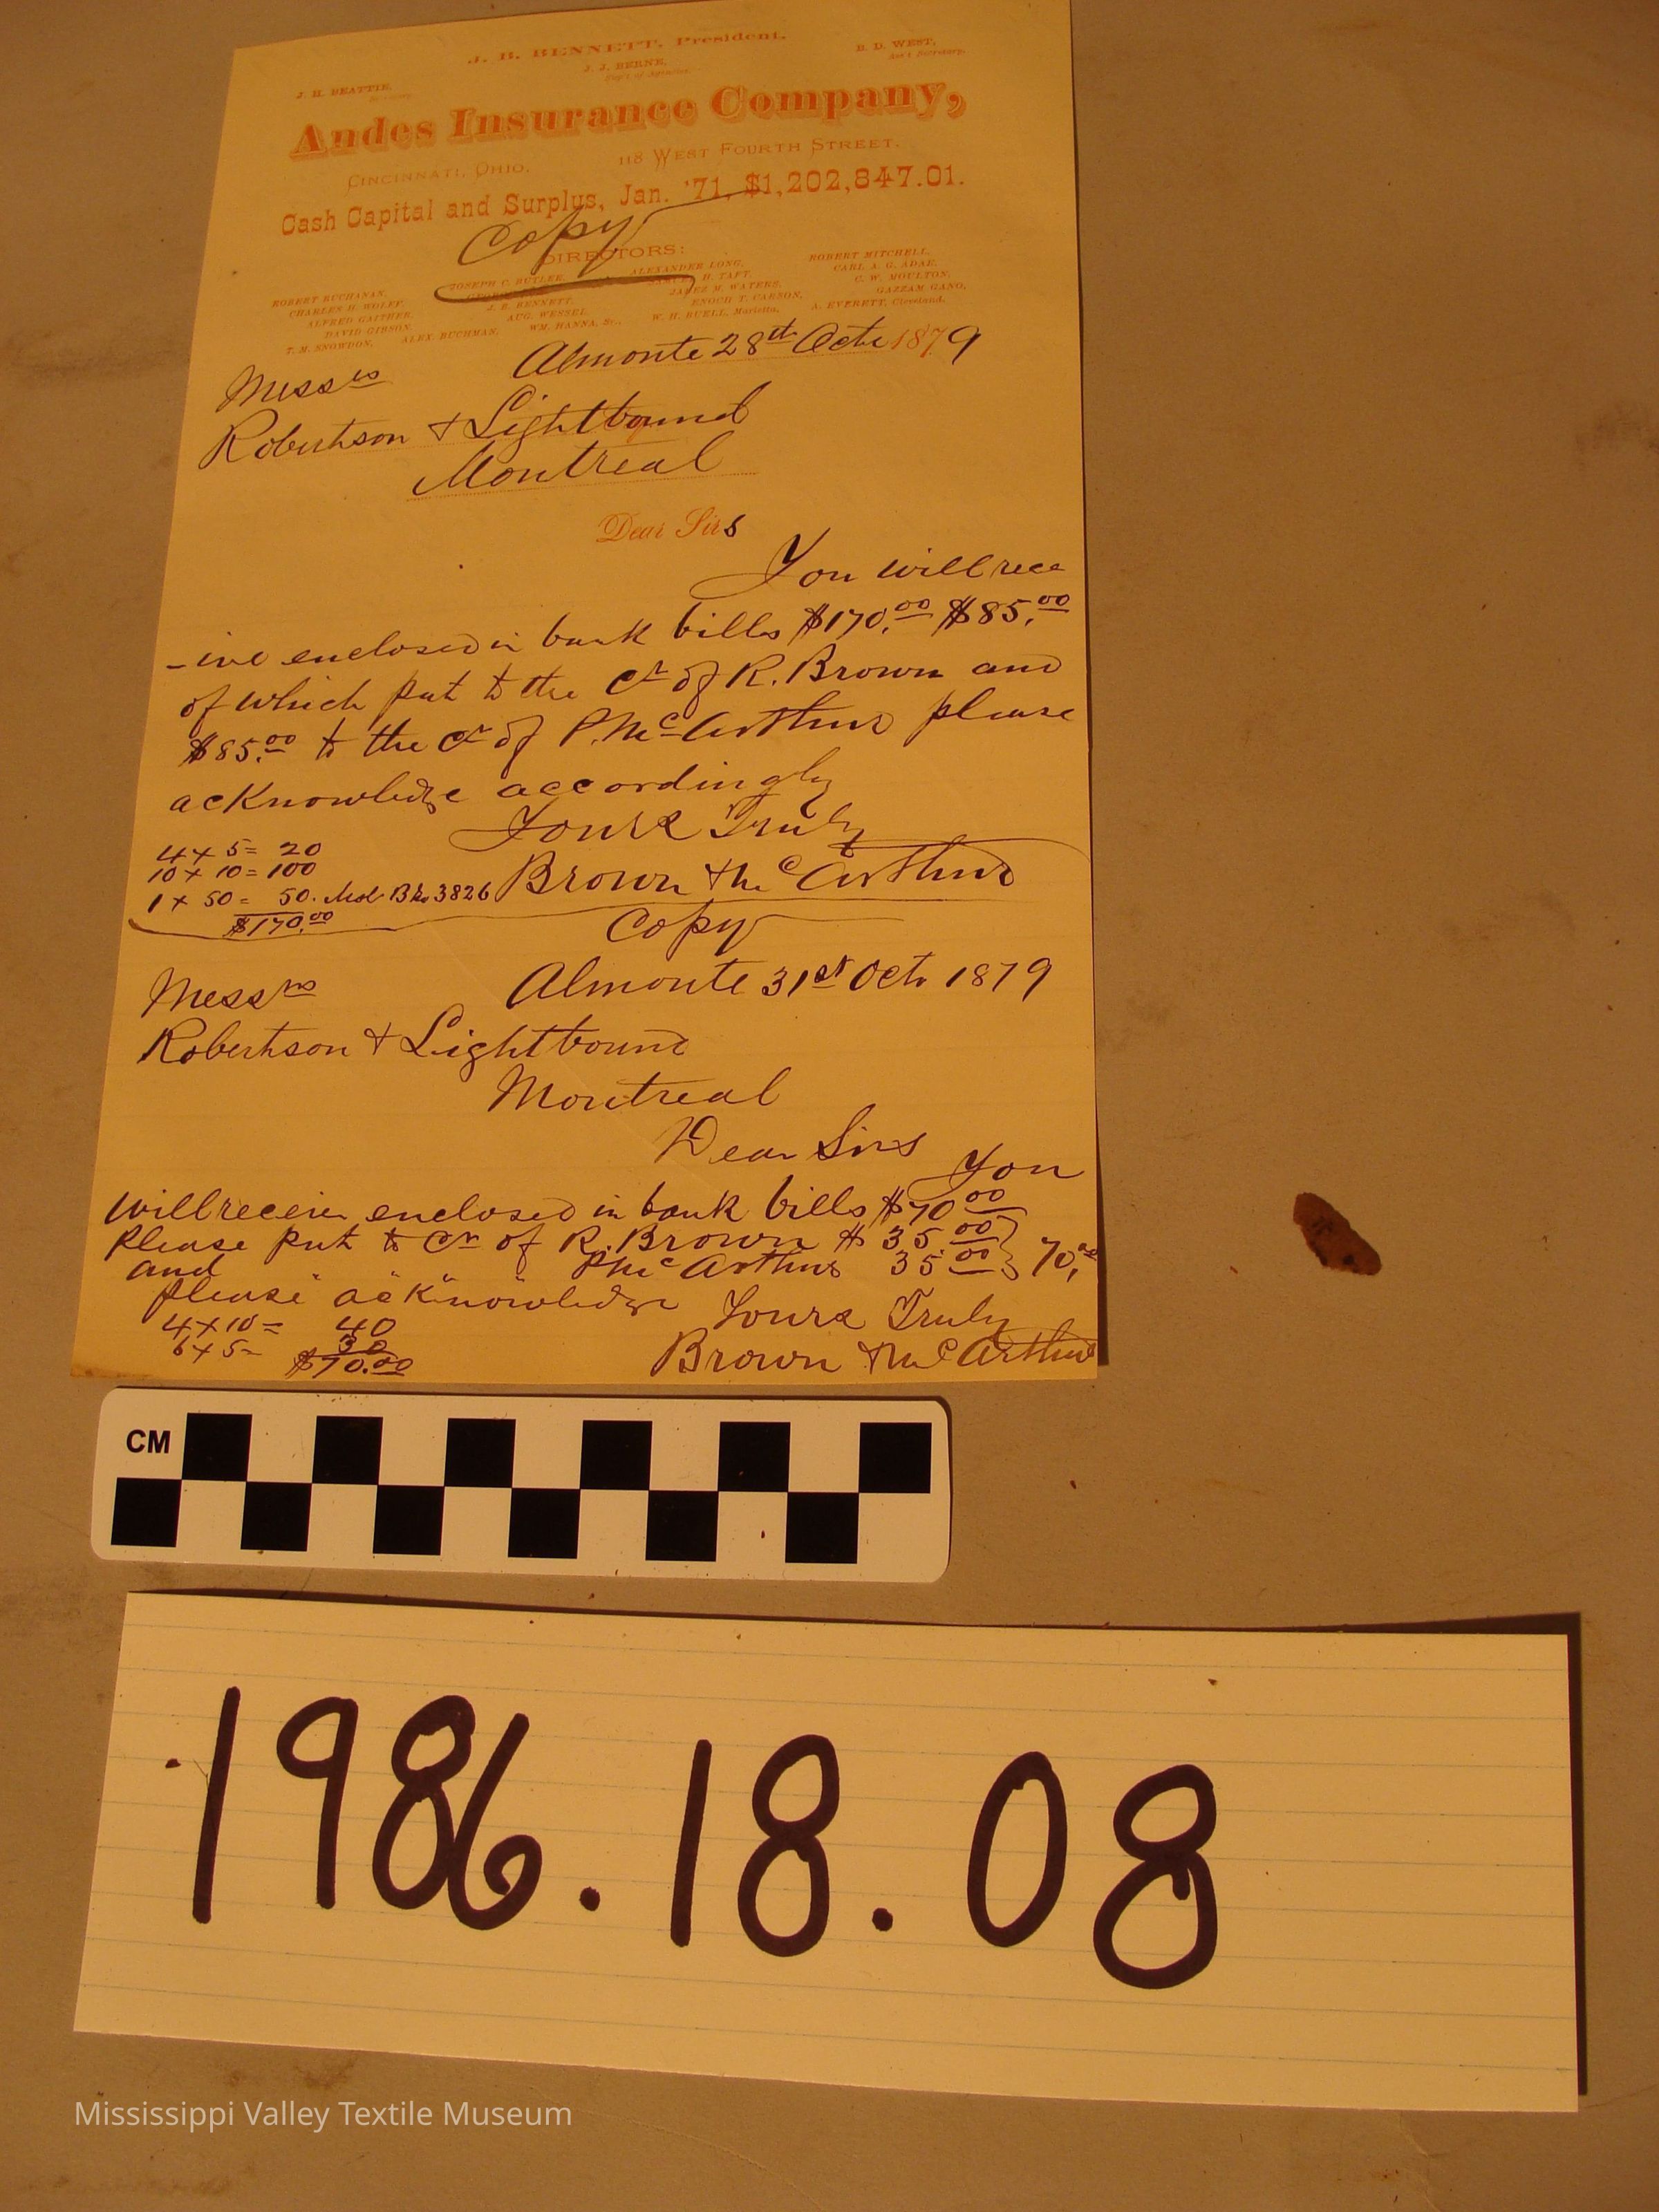 J. B. BENNETT, President.
J. J. BERNE,
Sup't of Agencies.
B. D. WEST,
Ass't Secretary.
J. H. BEATTIE,
Secretary.
Andes Insurance Company,
CINCINNATI, OHIO, 118 WEST FOURTH STREET.
Cash Capital and Surplus, Jan. '71, $1,202,847.01.
Copy
DIRECTORS:
ROBERT BUCHANAN,
CHARLES H. WOLFF,
ALFRED GAITHER,
DAVID GIBSON,
T. M. SNOWDON,
ALEX. BUCHMAN,
JOSEPH C. BUTLER,
J. B. BENNETT,
AUG. WESSEL,
WM. HANNA, Sr.,
ALEXANDER LONG,
H. TAFT,
JABEZ M. WATERS,
ENOCH T. CARSON,
W. H. BUELL, Marietta,
ROBERT MITCHELL,
CARL A. G. ADAE,
C. W. MOULTON,
GAZZAM GANO,
A. EVERETT, Cleveland.
Almonte 28th Octr 1879
Messrs
Robertson & Lightbound
Montreal
Dear Sirs
You will rece
-ive enclosed in bank bills $170.00 $85.00
of which put to the Cr of R. Brown and
$85.00 to the Cr of P. McArthur please
acknowledge accordingly
Yours Truly
Brown & McArthur
4 x 5 = 20
10 x 10 = 100
1 x 50 = 50. Mol Bk 3826
$170.00
Copy
Almonte 31st Oct 1879
Messrs
Robertson & Lightbound
Montreal
Dear Sirs
You
will receive enclosed in bank bills $70.00
Please put to Cr of R. Brown $35.00
and P McArthur 35.00 } 70.00
please acknowledge
Yours Truly
Brown & McArthur
4 x 10 = 40
6 x 5 = 30
$70.00
CM
1986.18.08
Mississippi Valley Textile Museum